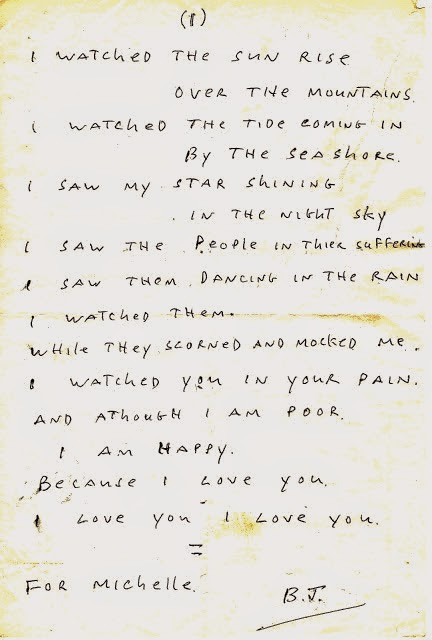 (1)
I WATCHED THE SUN RISE
OVER THE MOUNTAINS.
I WATCHED THE TIDE COMING IN
By THE SEASHORE.
I SAW My STAR SHINING
. IN THE NIGHT Sky
I SAW THE PEOPLE IN THIER SUFFERING
I SAW THEM DANCING IN THE RAIN
I WATCHED THEM.
WHILE THEY SCORNED AND MOCKED ME.
I WATCHED you IN your PAIN.
AND ATHOUGH I AM POOR.
I AM HAPPY.
BECAUSE I LOVE you.
I LOVE you I LOVE you.
=
FOR MICHELLE.
B.J.